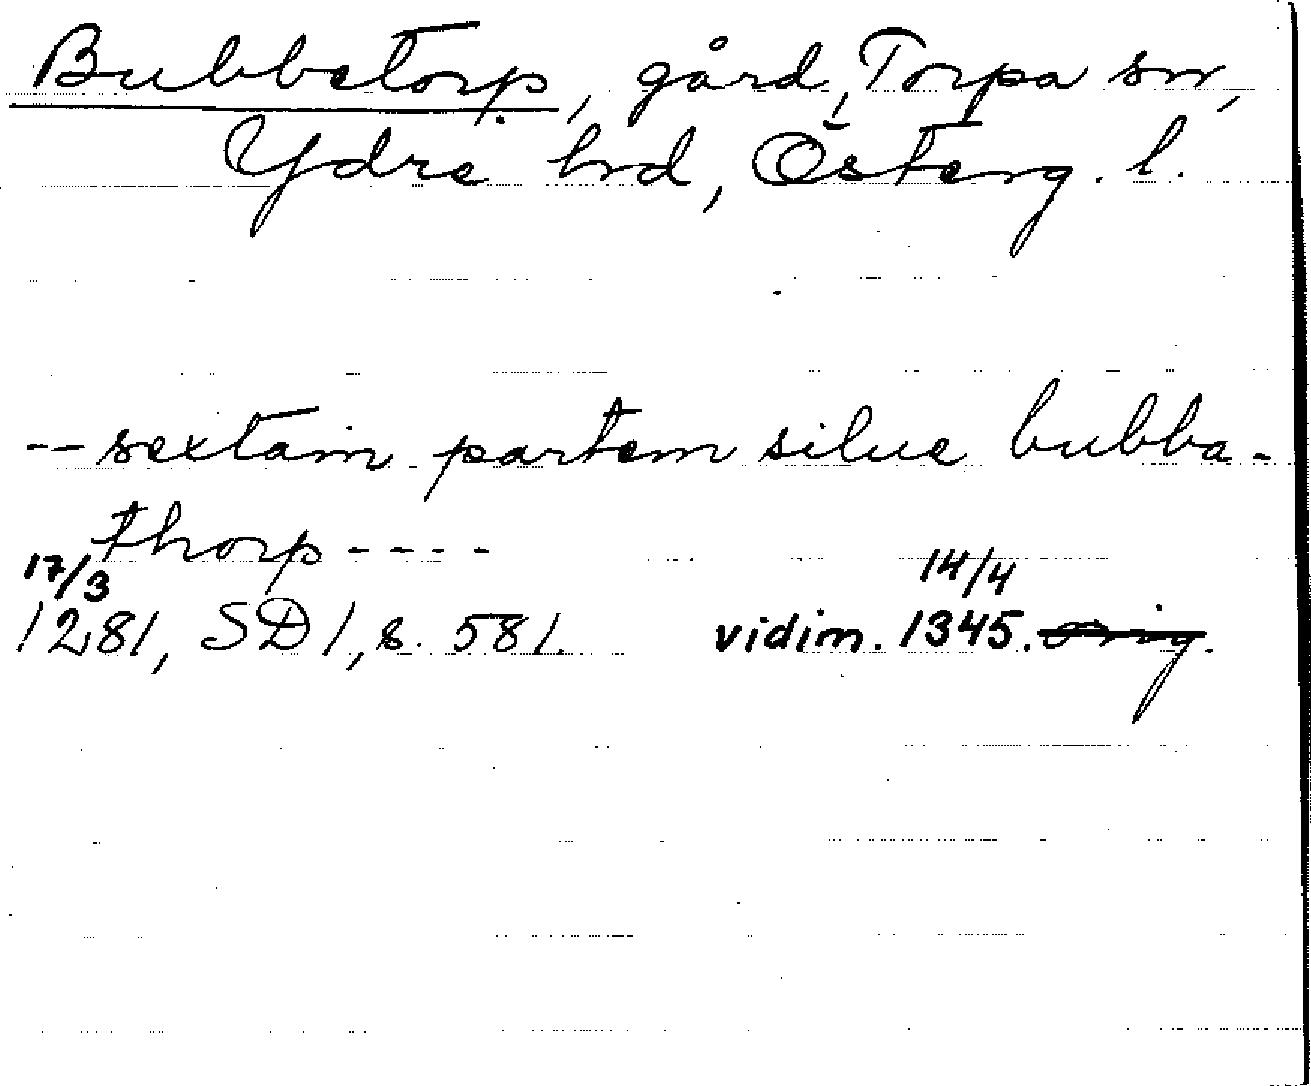 Bubbetorp, gård, Torpa sn,
Ydre hd, Österg. l.
-- sextam partem silue bubba-
thorp ----
17/3 14/4
1281, SD 1, s. 581. vidim. 1345. Orig.